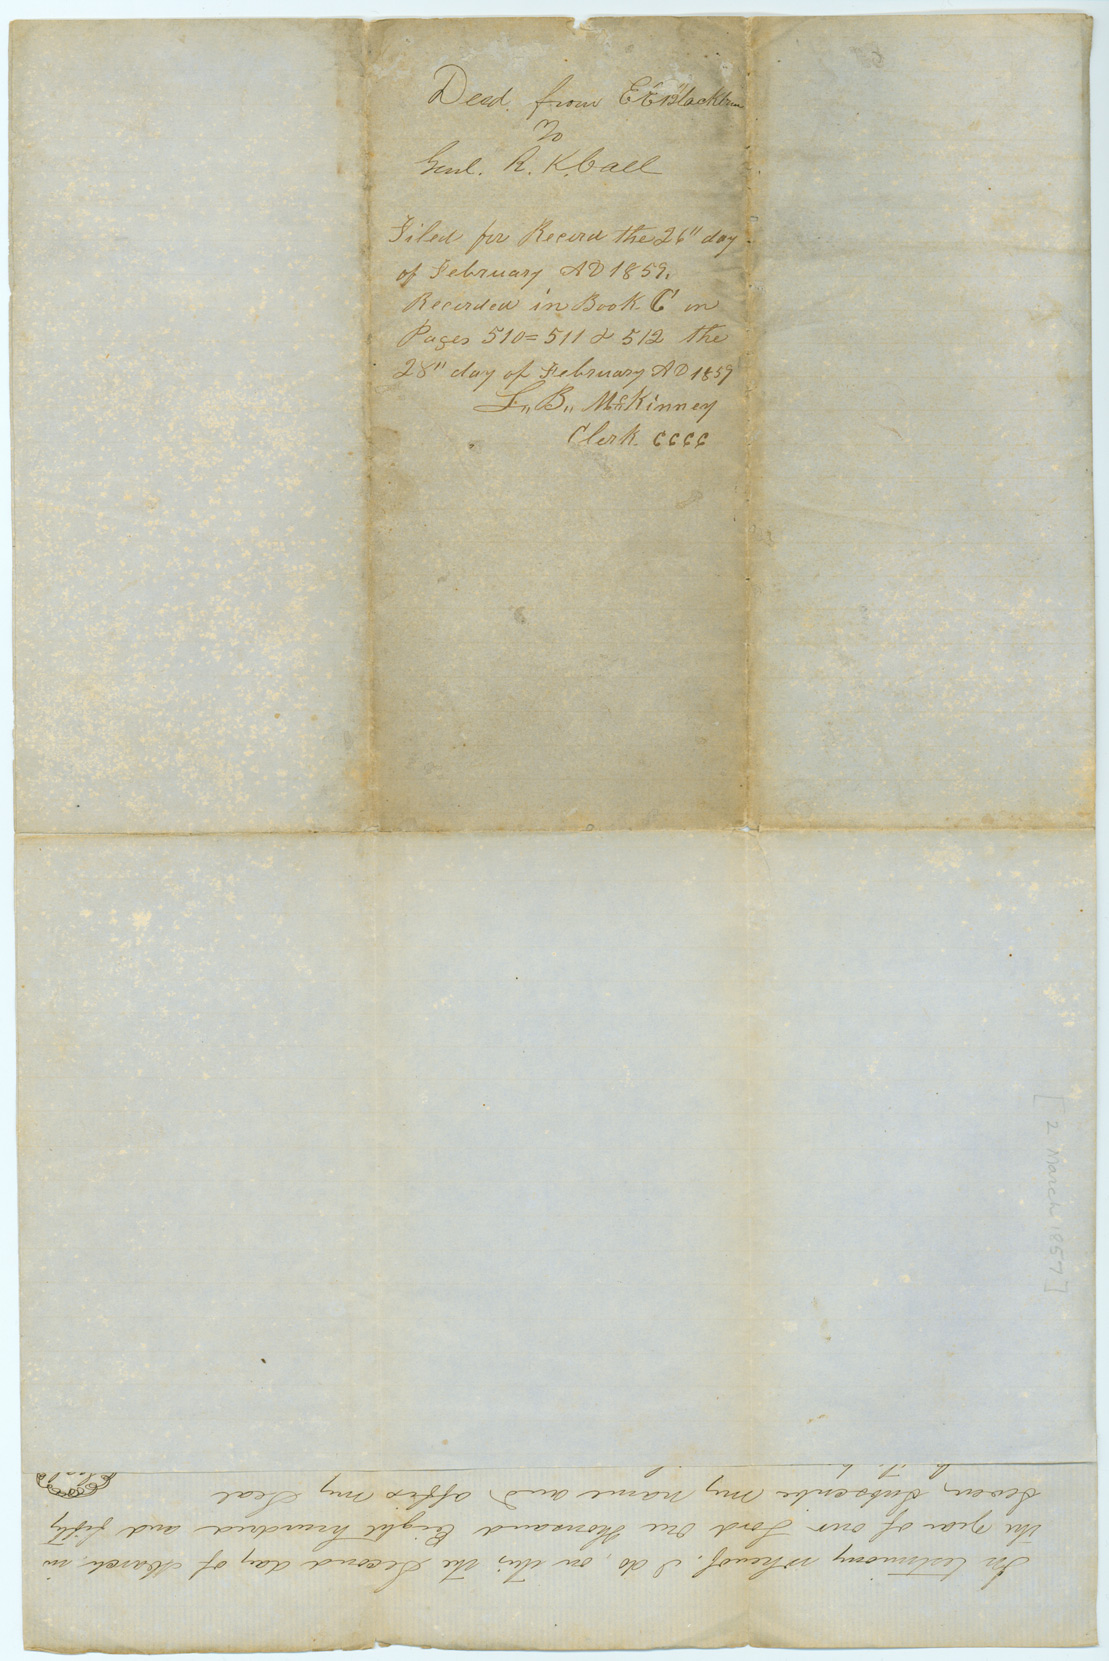 Deed. from E E Blackburn
To
Genl. R. K. Call
Filed for Record the 26" day
of February AD 1859.
Recorded in Book C on
Pages 510=511 & 512 the
28" day of February AD 1859
L,, B,, McKinney
Clerk CCCC
[2 March 1857]
In testimony whereof. I do, on this the Second day of March, in
the year of our Lord One thousand Eight hundred and fifty
Seven, Subscribe my name and affix my Seal